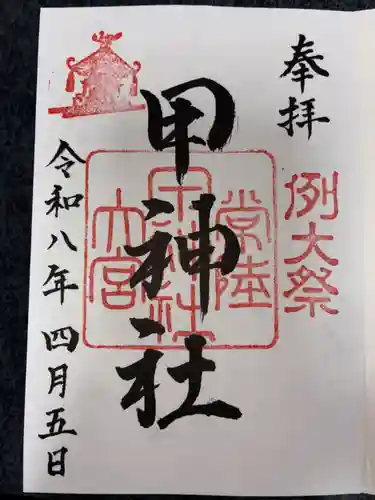 奉拝
例大祭
甲神社
常陸
甲神社
大宮
令和八年四月五日